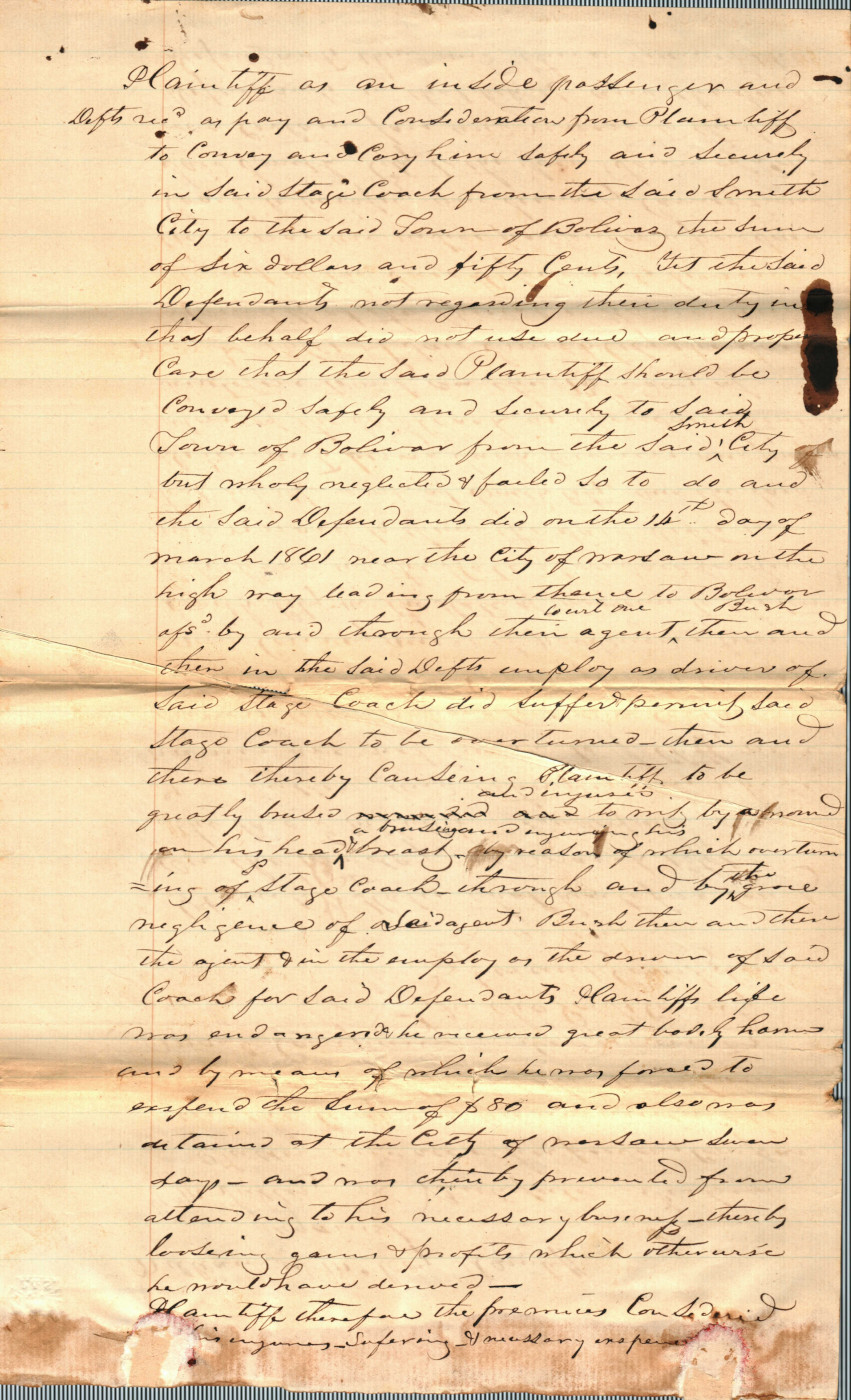 Plaintiff as an inside passenger and —
Defts recd as pay and Consideration from Plaintiff
to Convey and Cary him safely and securely
in said Stage Coach from the said Smith
City to the said Town of Bolivar the sum
of six dollars and fifty Cents, Yet the said
Defendants not regarding their duty in
that behalf did not use due and proper
Care that the said Plaintiff should be
Conveyed safely and securely to said
Smith
Town of Bolivar from the said City
but wholy neglected & failed so to do and
the said Defendants did on the 14th day of
march 1861 near the City of warsaw on the
high way leading from thence to Bolivar
Bush
afsd by and through their agent then and
then in the said Defts employ as driver of
said stage Coach did suffer & permit said
Stage Coach to be overturned - then and
there thereby Causeing Plaintiff to be
and injured
greatly brused and to wit by a wound
a brusing and injurying his
on his head & breast - by reason of which overturn
=ing of sd Stage Coach - through and by the grose
negligence of said agent Bush then and there
the agent & in the employ as the driver of said
Coach for said Defendants Plaintiffs life
was endangered & he received great bodily harm
and by means of which he was forced to
expend the sum of $80 and also was
detained at the City of warsaw seven
days - and was thereby prevented from
attending to his necessary business - thereby
looseing gains & profits which otherwise
he would have derived —
Plaintiff therefore the premices Considered
his injuries - sufering - & necessary expens